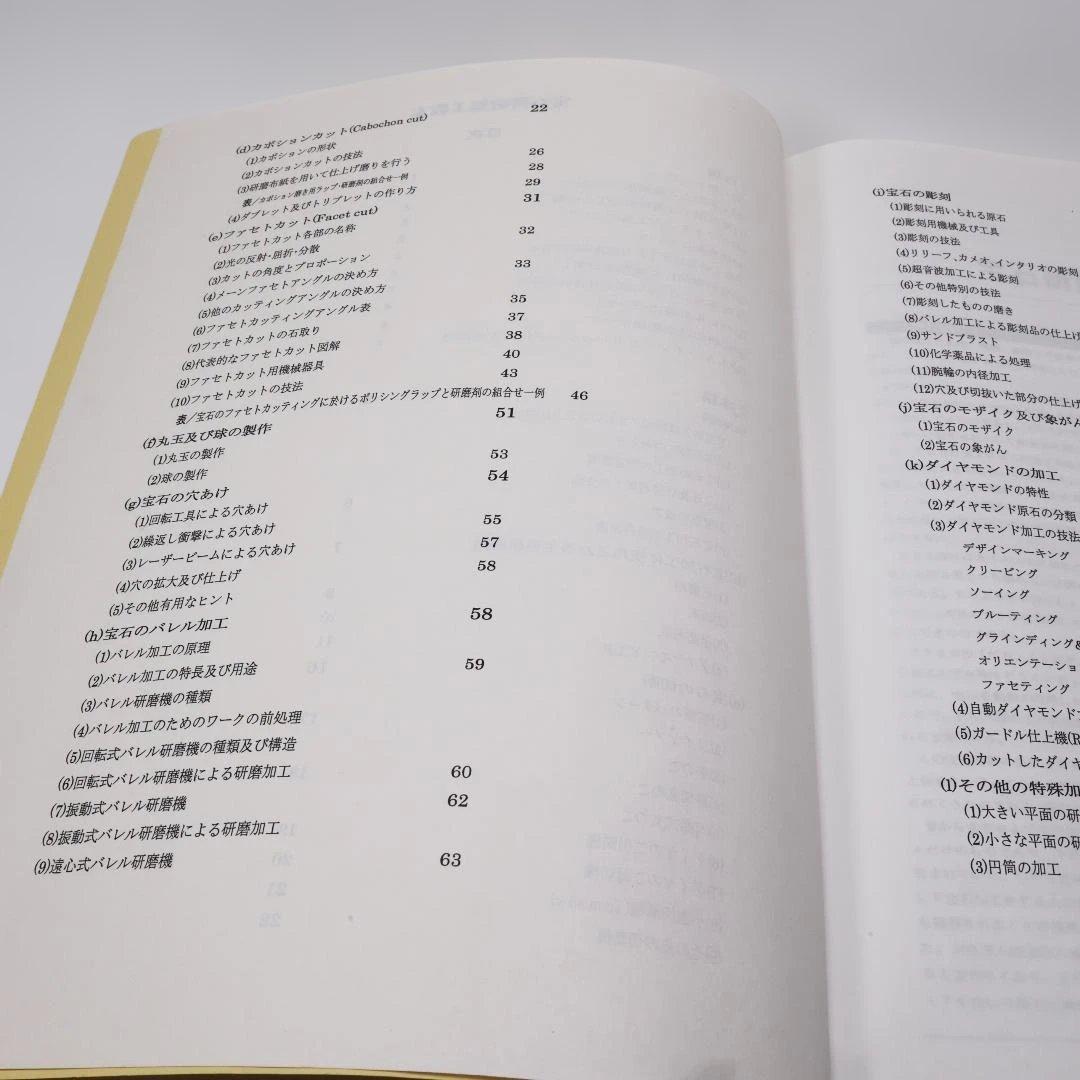 (d)カボションカット(Cabochon cut)
(1)カボションの形状 22
(2)カボションカットの技法
(3)研磨布紙を用いて仕上げ磨りを行う 26
表/カボション磨き用ラップ・研磨剤の組合せ一例 28
(4)ダブレット及びトリプレットの作り方 29
(e)ファセットカット(Facet cut) 31
(1)ファセトカット各部の名称
(2)光の反射・屈折・分散 32
(3)カットの角度とプロポーション
(4)メーンファセトアングルの決め方 33
(5)他のカッティングアングルの決め方
(6)ファセトカッティングアングル表 35
(7)ファセトカットの石取り 37
(8)代表的なファセトカット図解 38
(9)ファセトカット用機械器具 40
(10)ファセトカットの技法 43
表/宝石のファセトカッティングに於けるポリシングラップと研磨剤の組合せ一例 46
(f)丸玉及び球の製作 51
(1)丸玉の製作
(2)球の製作 53
(g)宝石の穴あけ 54
(1)回転工具による穴あけ
(2)繰返し衝撃による穴あけ 55
(3)レーザービームによる穴あけ 57
(4)穴の拡大及び仕上げ 58
(5)その他有用なヒント
(h)宝石のバレル加工 58
(1)バレル加工の原理
(2)バレル加工の特長及び用途 59
(3)バレル研磨機の種類
(4)バレル加工のためのワークの前処理
(5)回転式バレル研磨機の種類及び構造
(6)回転式バレル研磨機による研磨加工 60
(7)振動式バレル研磨機 62
(8)振動式バレル研磨機による研磨加工
(9)遠心式バレル研磨機 63
(i)宝石の彫刻
(1)彫刻に用いられる原石
(2)彫刻用機械及び工具
(3)彫刻の技法
(4)リリーフ、カメオ、インタリオの彫刻
(5)超音波加工による彫刻
(6)その他特別の技法
(7)彫刻したものの磨き
(8)バレル加工による彫刻品の仕上げ
(9)サンドブラスト
(10)化学薬品による処理
(11)腕輪の内径加工
(12)穴及び切抜いた部分の仕上げ
(j)宝石のモザイク及び象がん
(1)宝石のモザイク
(2)宝石の象がん
(k)ダイヤモンドの加工
(1)ダイヤモンドの特性
(2)ダイヤモンド原石の分類
(3)ダイヤモンド加工の技法
デザインマーキング
クリービング
ソーイング
ブルーティング
グラインディング&
オリエンテーショ
ファセティング
(4)自動ダイヤモンド
(5)ガードル仕上機(R
(6)カットしたダイヤ
(l)その他の特殊加
(1)大きい平面の研
(2)小さな平面の研
(3)円筒の加工